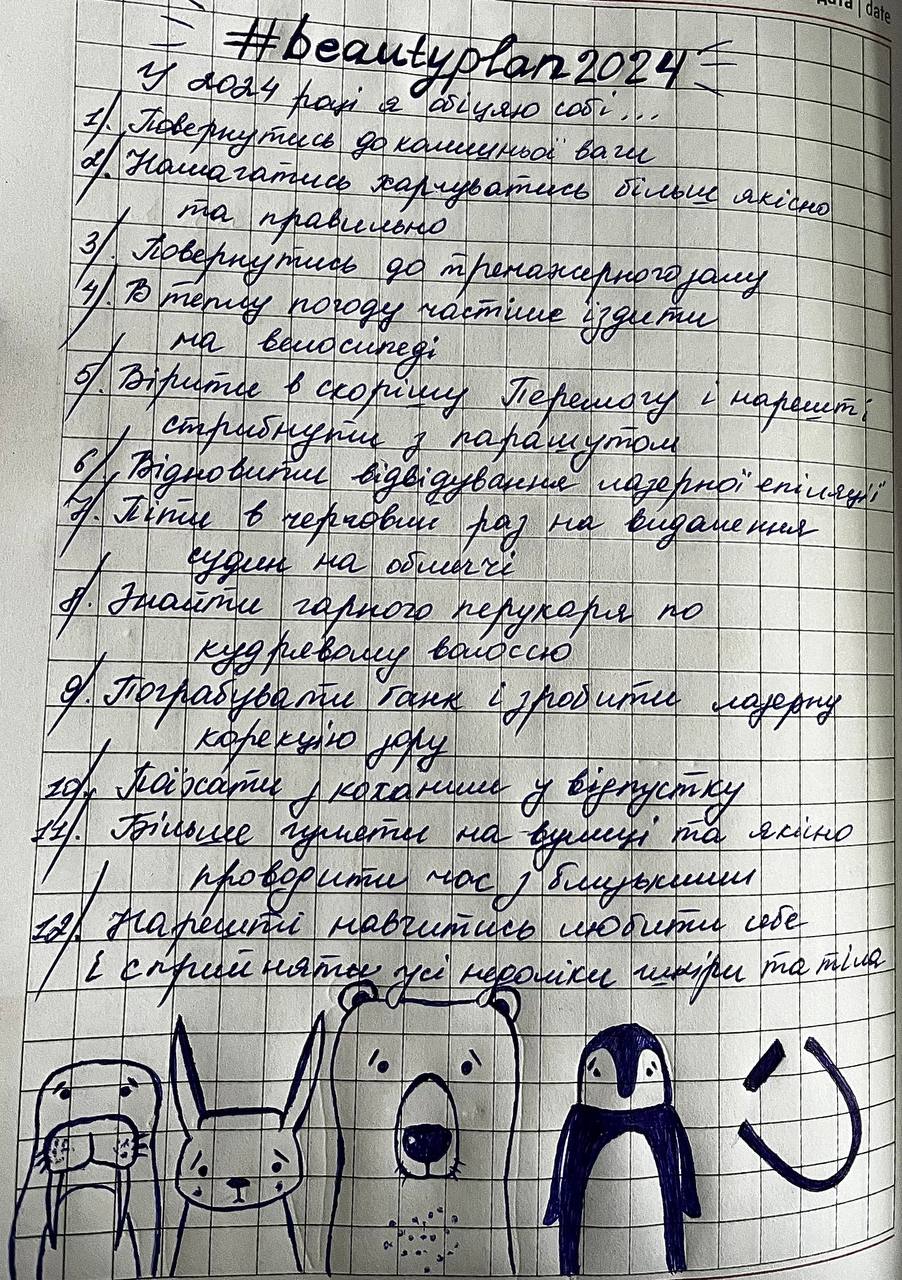 дата | date
#beautyplan2024
У 2024 році я обіцяю собі...
1). Повернутись до колишньої ваги
2). Намагатись харчуватись більш якісно
та правильно
3). Повернутись до тренажерного залу
4). В теплу погоду частіше їздити
на велосипеді
5). Вірити в скорішу Перемогу і нарешті
стрибнути з парашутом
6). Відновити відвідування лазерної епіляції
7). Піти в черговий раз на видалення
судин на обличчі
8). Знайти гарного перукаря по
кудрявому волоссю
9). Пограбувати банк і зробити лазерну
корекцію зору
10). Поїхати з коханим у відпустку
11). Більше гуляти на вулиці та якісно
проводити час з близькими
12). Нарешті навчитись любити себе
і сприйняти усі недоліки шкіри та тіла